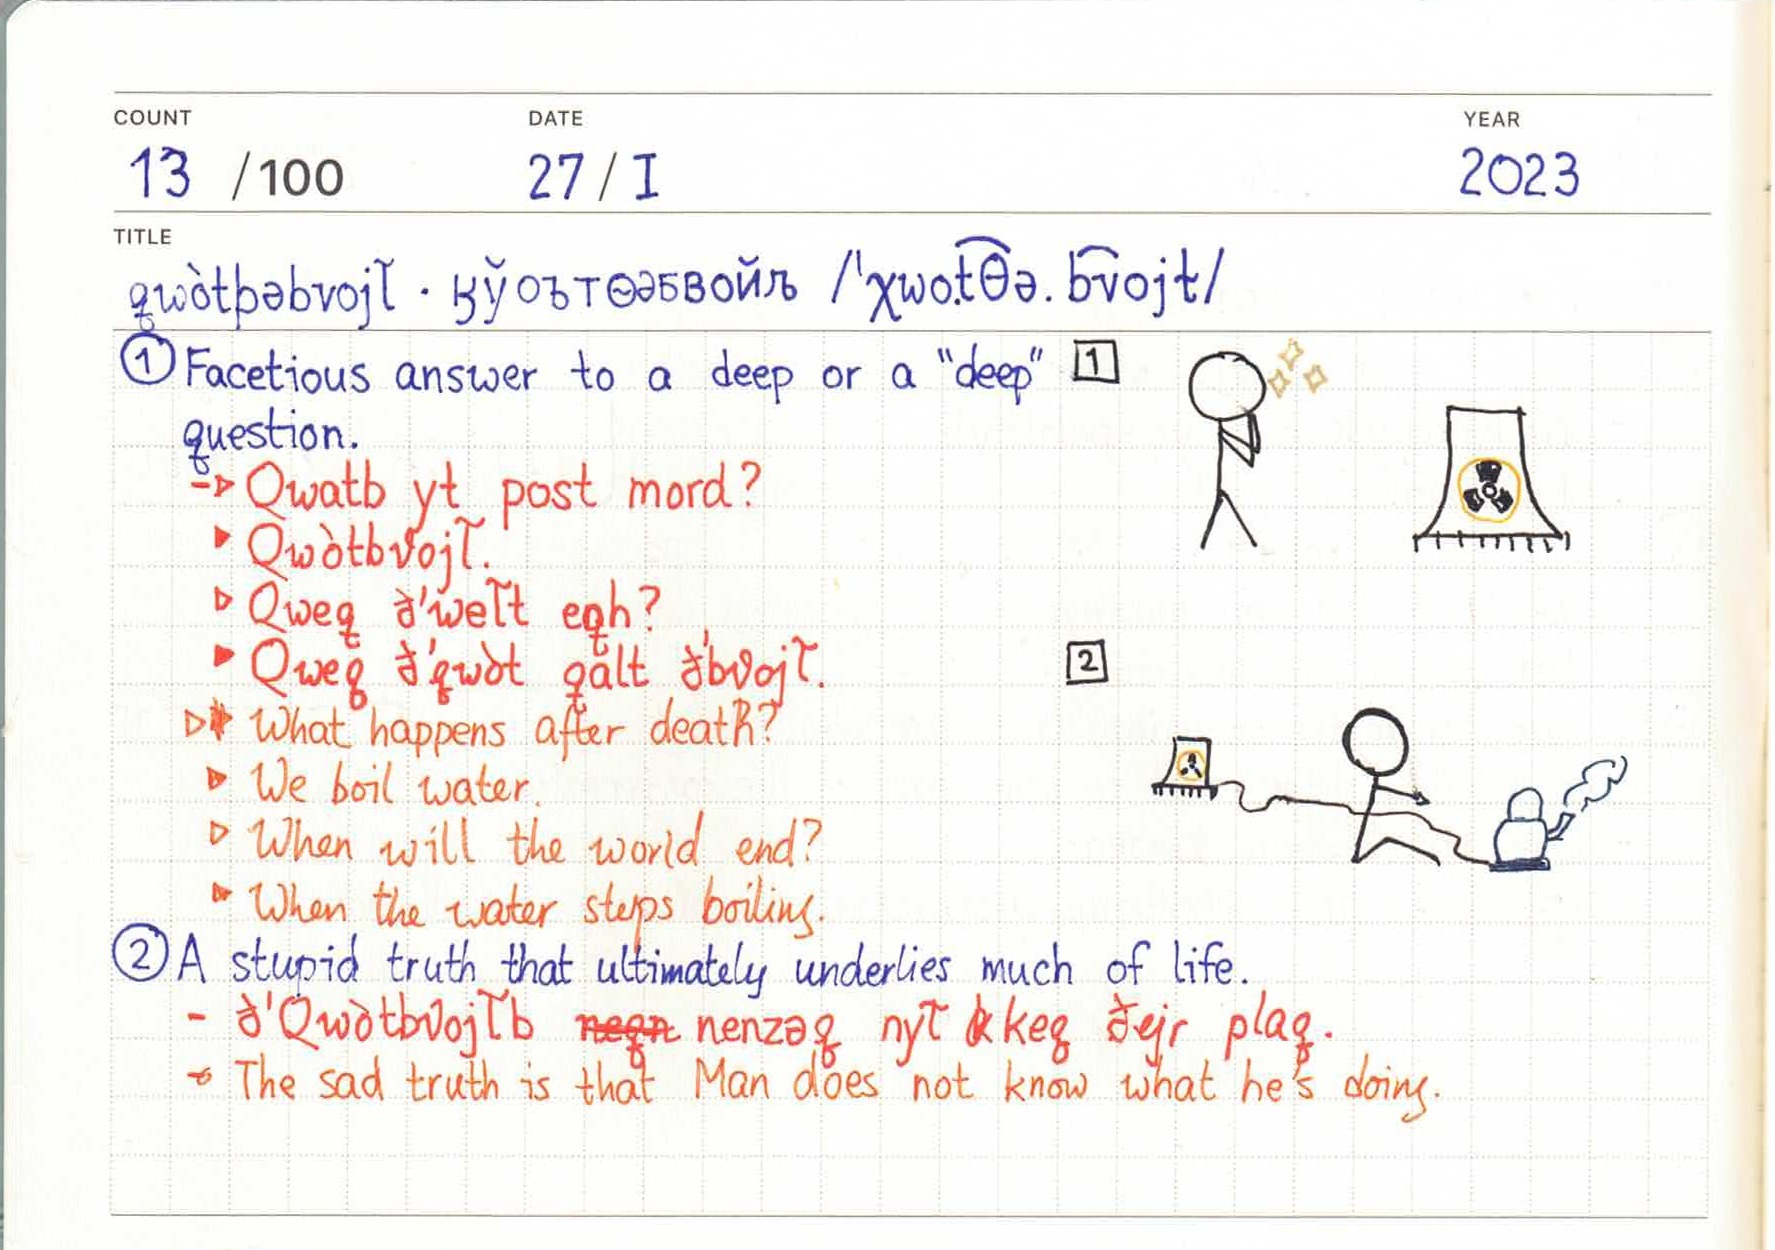 COUNT DATE YEAR
13 /100 27 / I 2023
TITLE
qwòtþəbvojl̃ · ӄў оътѳәбвойљ /ˈχwo.t͡θə.b͡vojɫ/
① Facetious answer to a deep or a "deep" 1
question.
-▹ Qwatb yt post mord?
▸ Qwòtbvojl̃.
▹ Qweq ð'wel̃t eqh?
▸ Qweq ð'qwòt qàlt ð'bvojl̃.
2
▹ What happens after death?
▸ We boil water.
▹ When will the world end?
▸ When the water stops boiling.
② A stupid truth that ultimately underlies much of life.
- ð'Qwòtbvojl̃b nenzəq nyl̃ keq ðejr plaq.
- The sad truth is that Man does not know what he's doing.